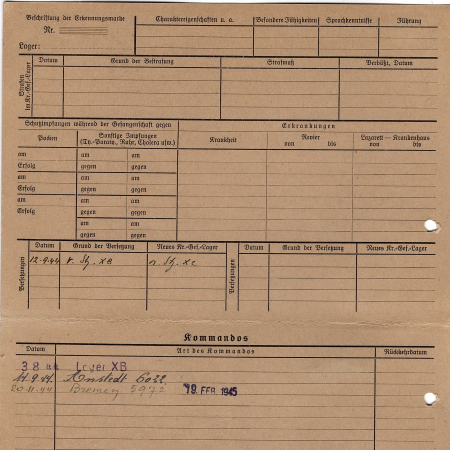 Beschriftung der Erkennungsmarke
Nr.
Lager:
Charaktereigenschaften u. a.
Besondere Fähigkeiten
Sprachkenntnisse
Führung
Strafen im Kr.-Gef.-Lager
Datum
Grund der Bestrafung
Strafmaß
Verbüßt, Datum
Schutzimpfungen während der Gefangenschaft gegen
Erkrankungen
Pocken
Sonstige Impfungen
(Ty.-Paraty., Ruhr, Cholera usw.)
Krankheit
Revier
von bis
Lazarett — Krankenhaus
von bis
am am am
Erfolg gegen gegen
am am am
Erfolg gegen gegen
am am am
Erfolg gegen gegen
am am
gegen gegen
Versetzungen
Datum
Grund der Versetzung
Neues Kr.-Gef.-Lager
Versetzungen
Datum
Grund der Versetzung
Neues Kr.-Gef.-Lager
12.9.44 v. XB n. Xc
Kommandos
Datum
Art des Kommandos
Rückkehrdatum
3 8 44 Lager XB
14.9.44. 6032
20.11.44 Bremen 5972 19. FEB. 1945